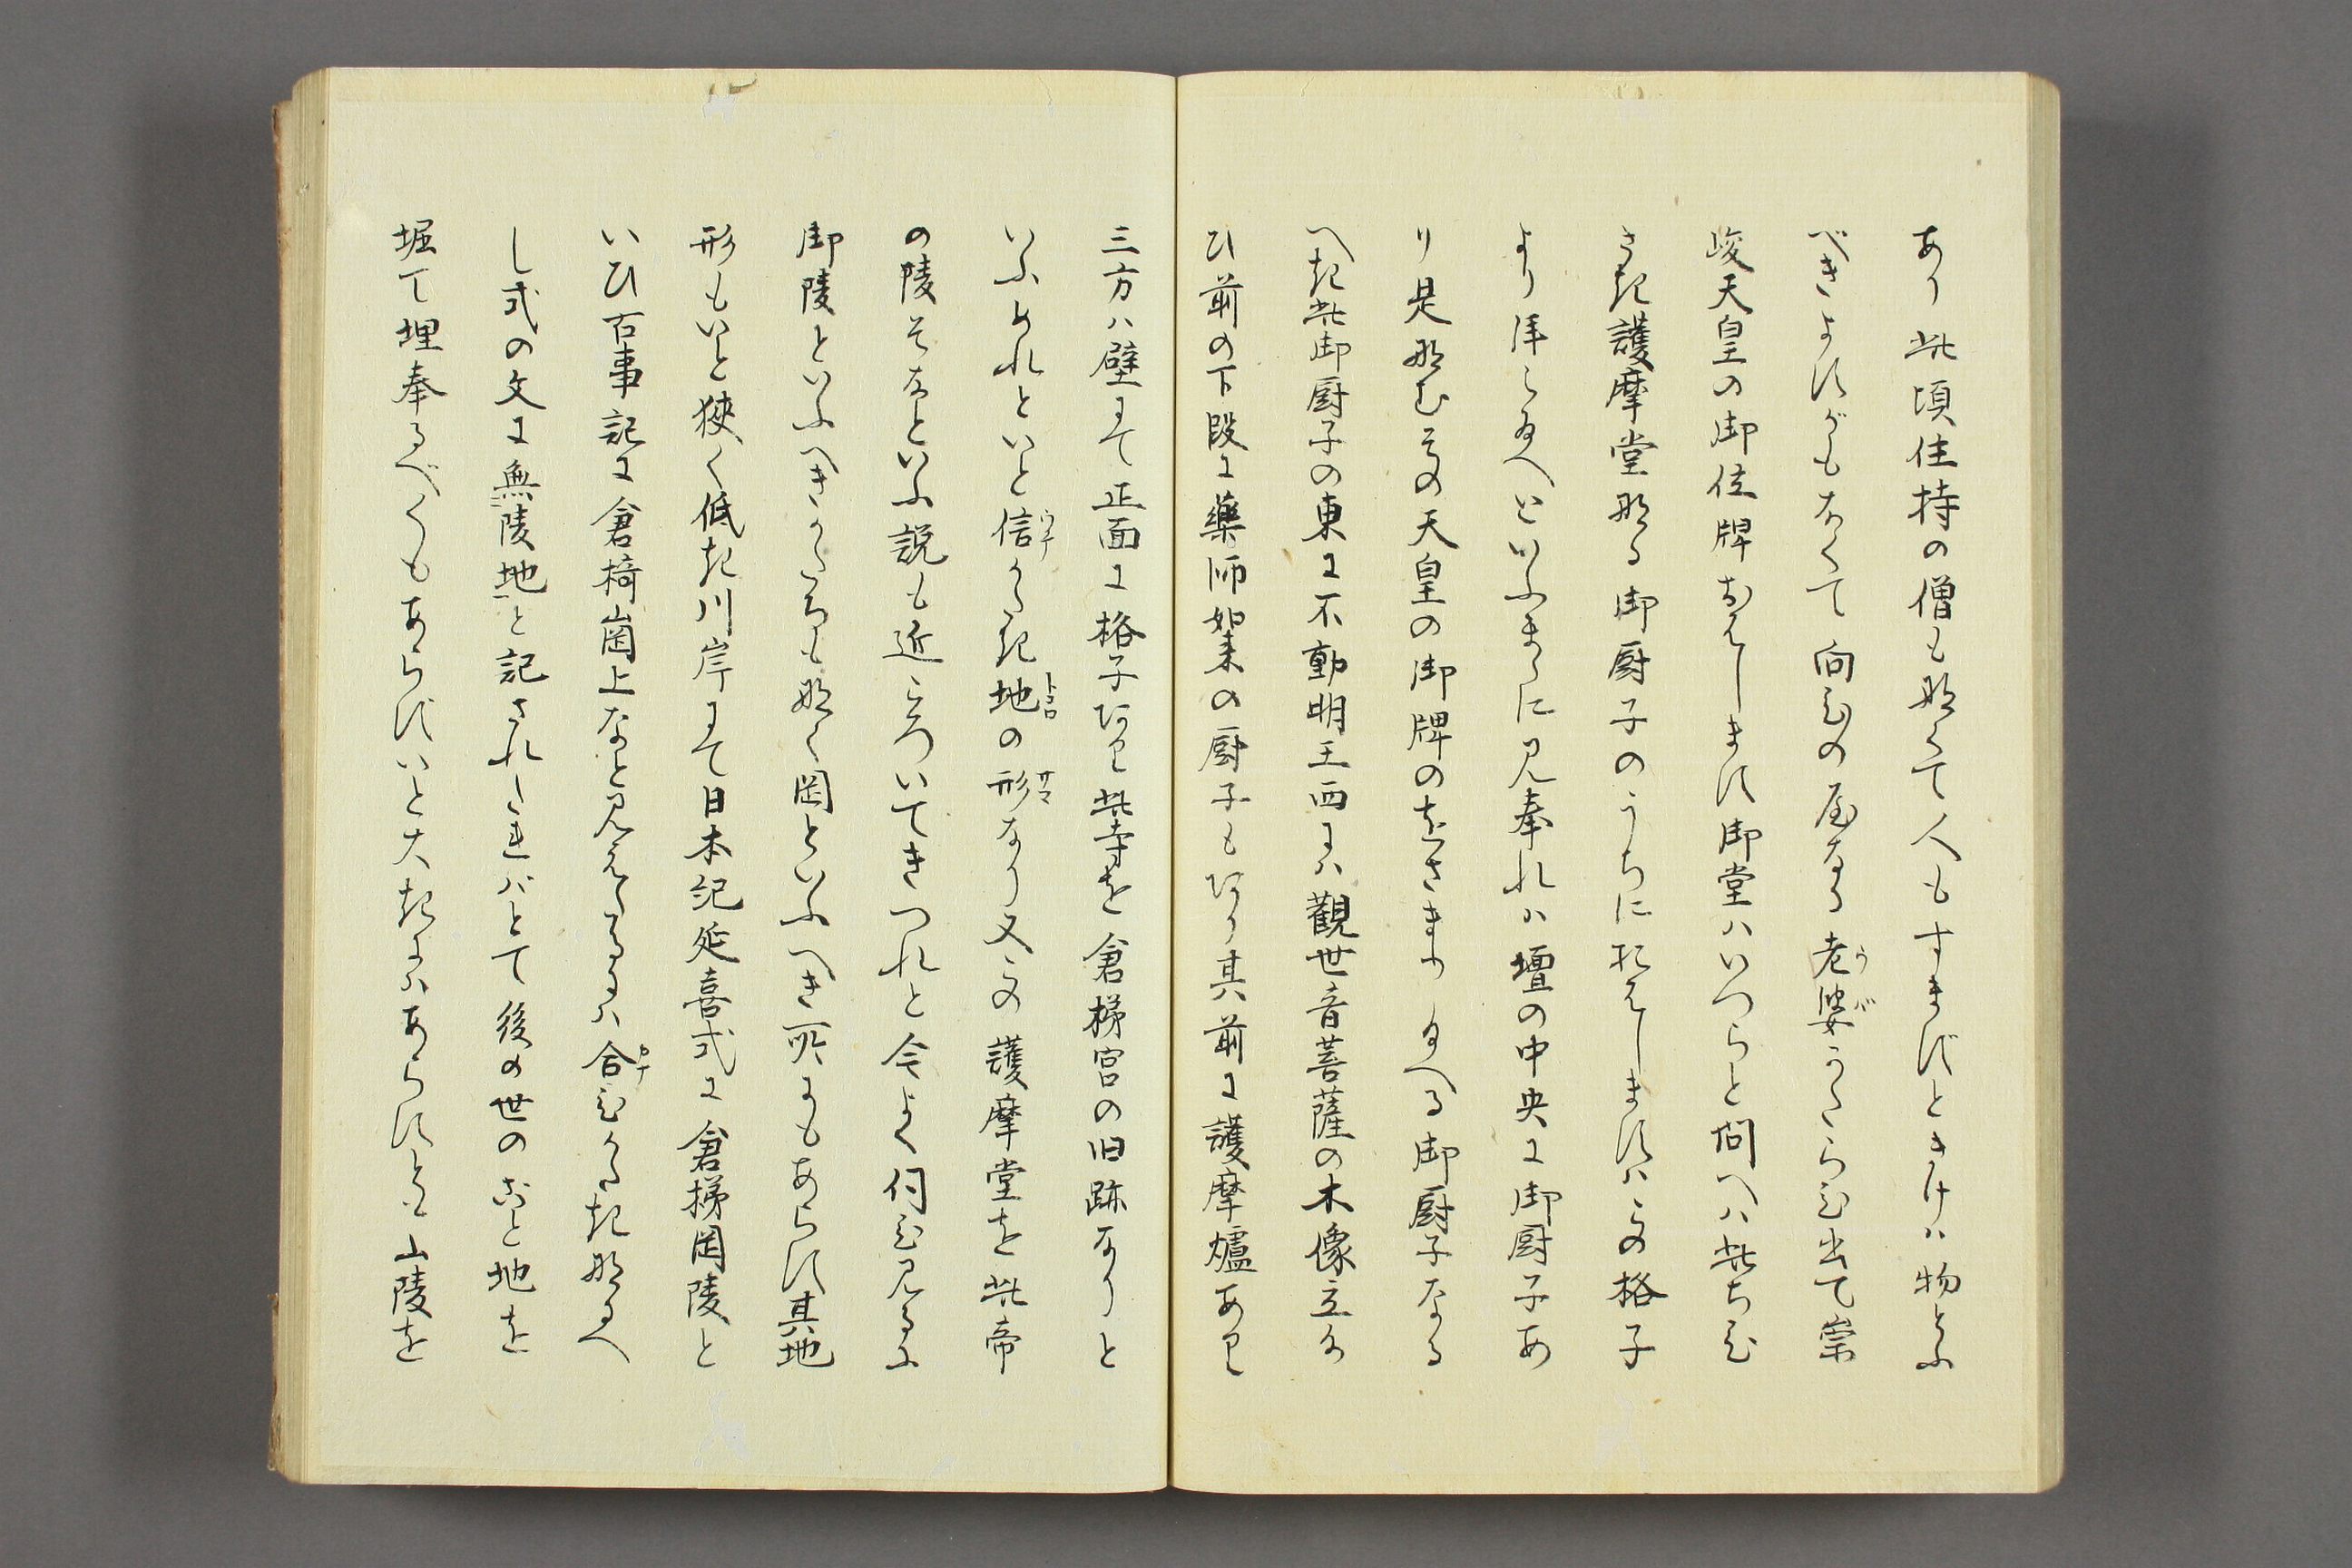 あり此頃住持の僧も那くて人もすまずときけハ物とふ
べきよすがもなくて向ひの屋なる老婆かたらひ出て崇
峻天皇の御位牌おはします御堂ハいつらと問へハ此ちひ
さき護摩堂那る御厨子のうちにおはしますハこの格子
より拝したまへといふまゝに見奉れハ壇の中央に御厨子あ
り是那むこの天皇の御牌のをさまりたまへる御厨子なる
へき此御厨子の東に不動明王西にハ観世音菩薩の木像立給
ひ前の下段に薬師如来の厨子もあり其前に護摩爐あり
三方ハ壁にて正面に格子あり此寺を倉梯宮の旧跡なりと
いふめれといと信かたき地の形なり又この護摩堂を此帝
の陵そなといふ説も近ころいてきつれと今よく何ひ見るに
御陵といふへきかたちも那く岡といふへき所にもあらす其地
形もいと狭く低き川岸にて日本紀延喜式に倉梯岡陵と
いひ古事記に倉椅崗上なと見えたるにハ合ひかたき那るへ
し式の文に無陵地と記されたれバとて後の世のこと地を
堀て埋奉るべくもあらずいと大きにハあらすとも山陵を